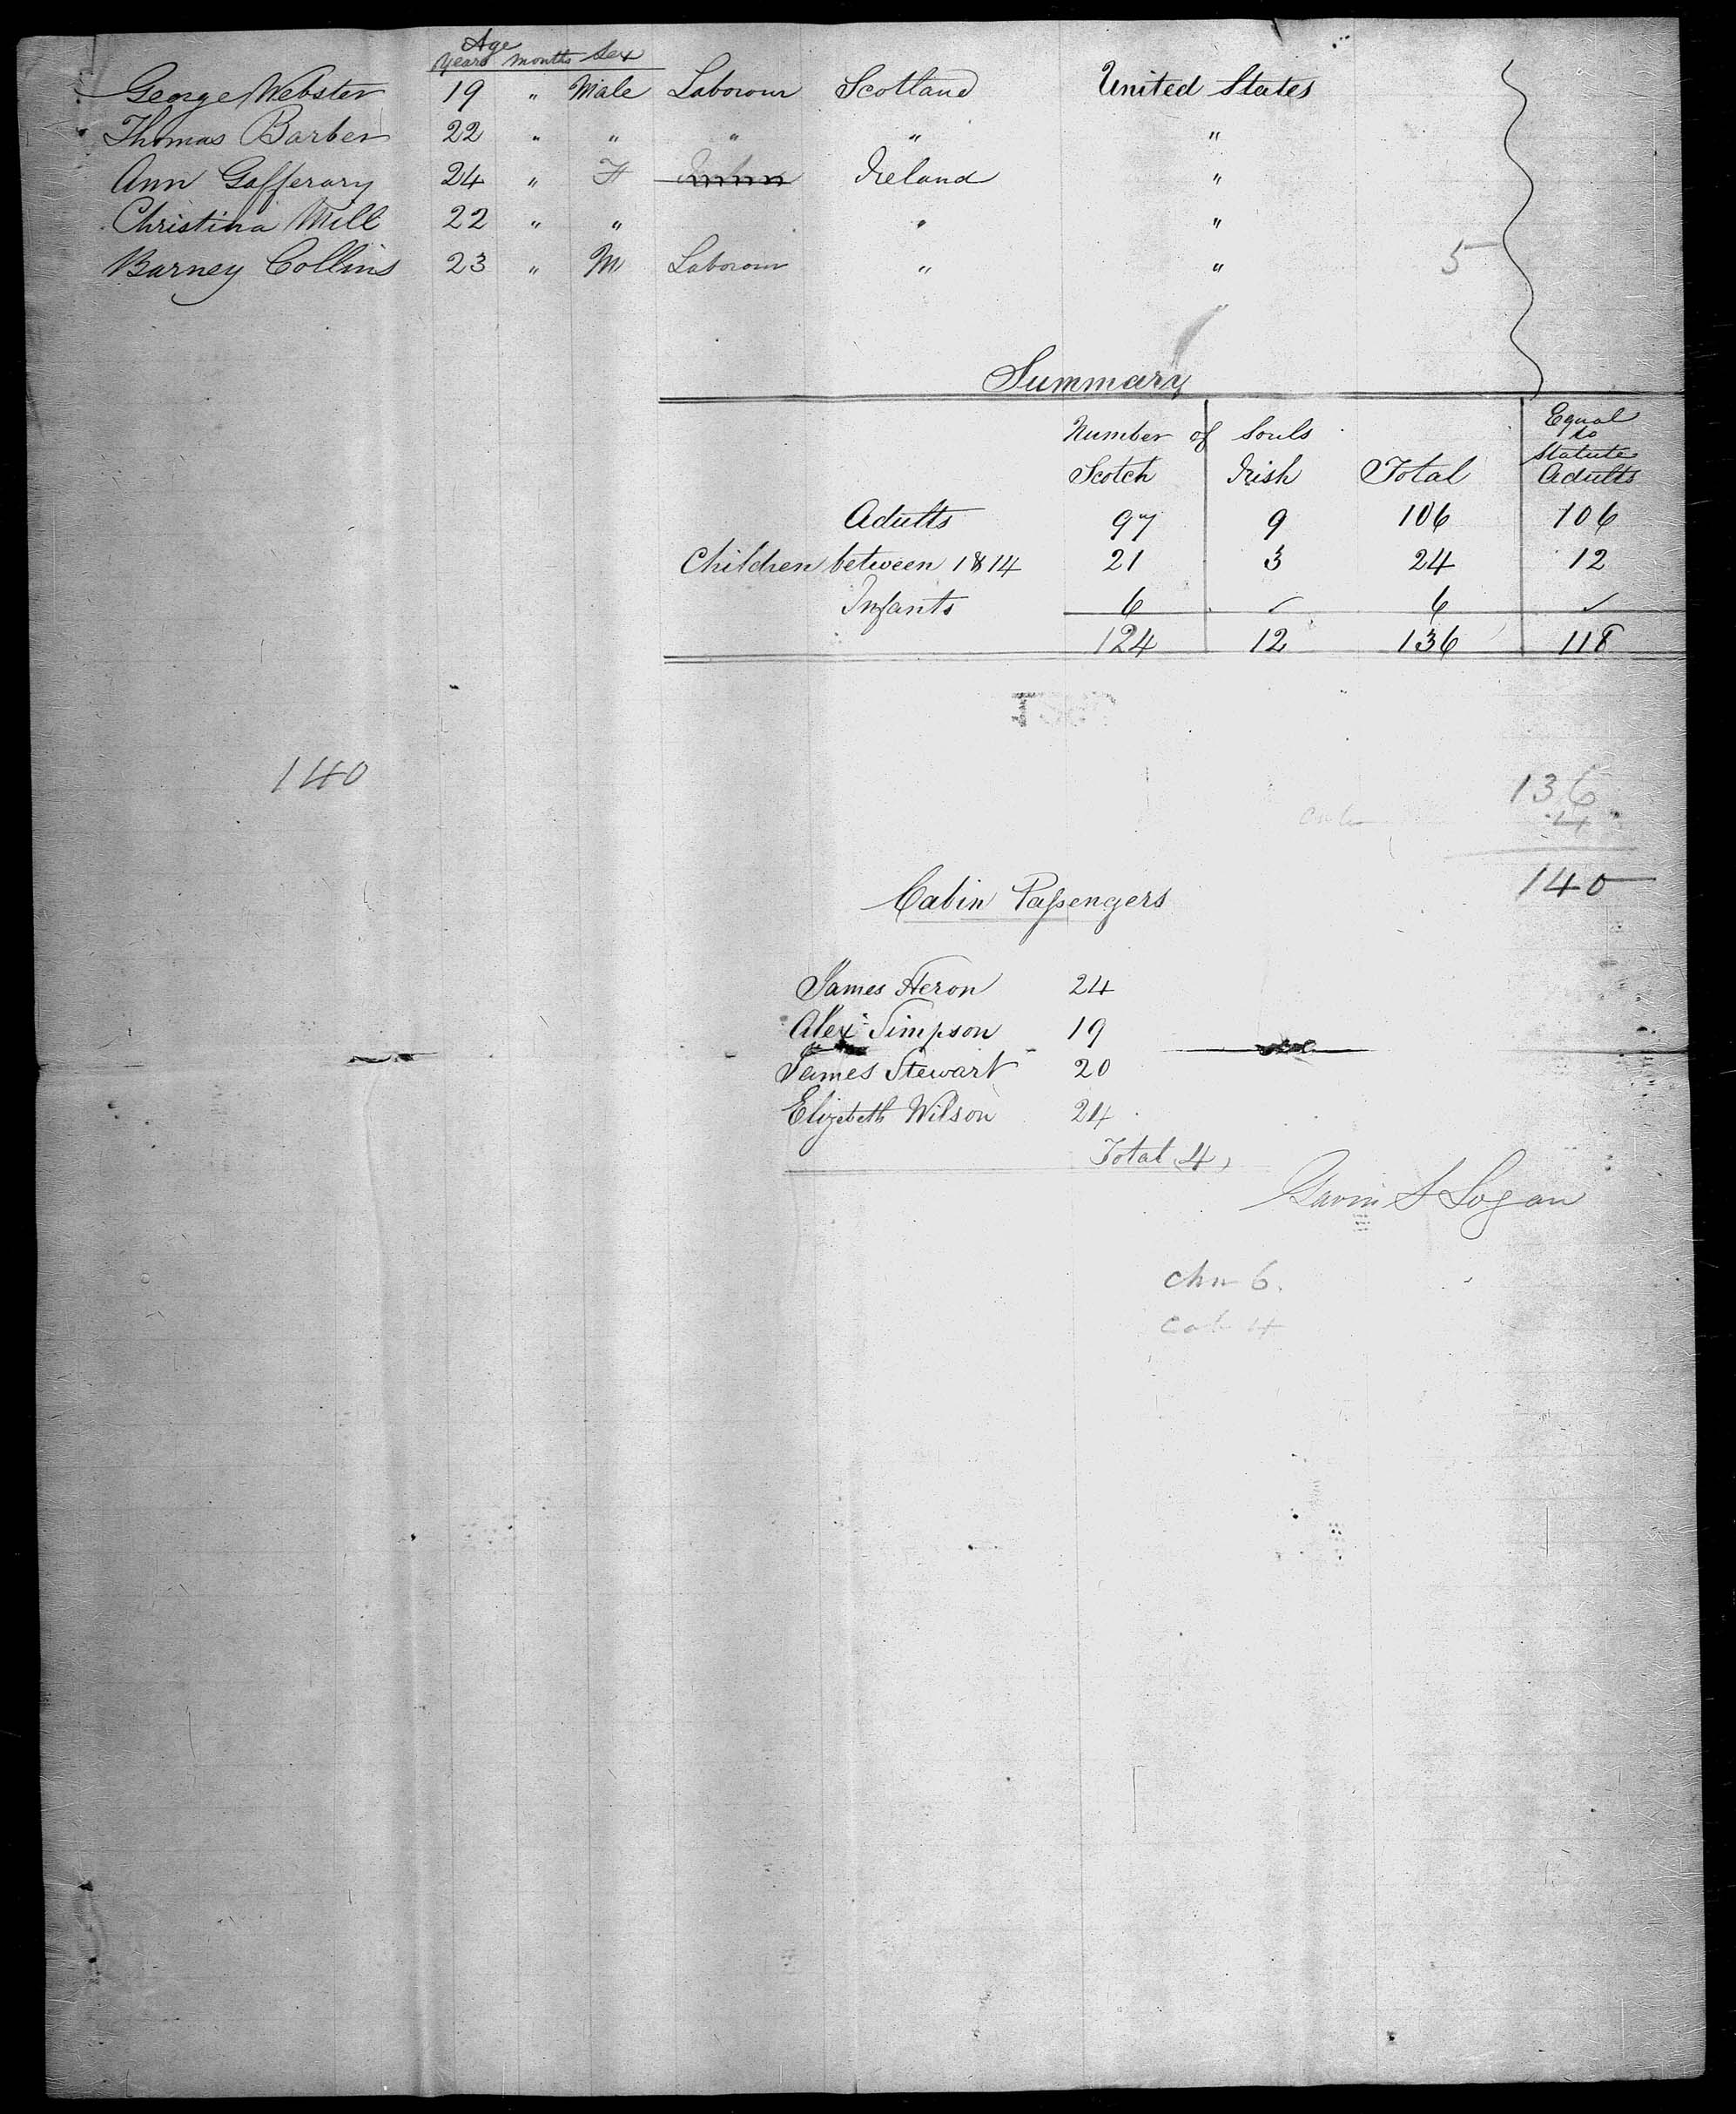 Age
Years Months Sex
George Webster 19 " Male Labourer Scotland United States
Thomas Barber 22 " " " " "
Ann Gafferary 24 " F Ireland "
Christina Mill 22 " " " "
Barney Collins 23 " M Labourer " "
5
Summary
Number of Souls Equal to Statute Adults
Scotch Irish Total
Adults 97 9 106 106
Children between 1 & 14 21 3 24 12
Infants 6 ✓ 6 ✓
124 12 136 118
140
136
4
140
Cabin Passengers
James Heron 24
Alexr Simpson 19
James Stewart 20
Elizabeth Wilson 24
Total 4
Gavin S Logan
Chn 6.
Cab 4